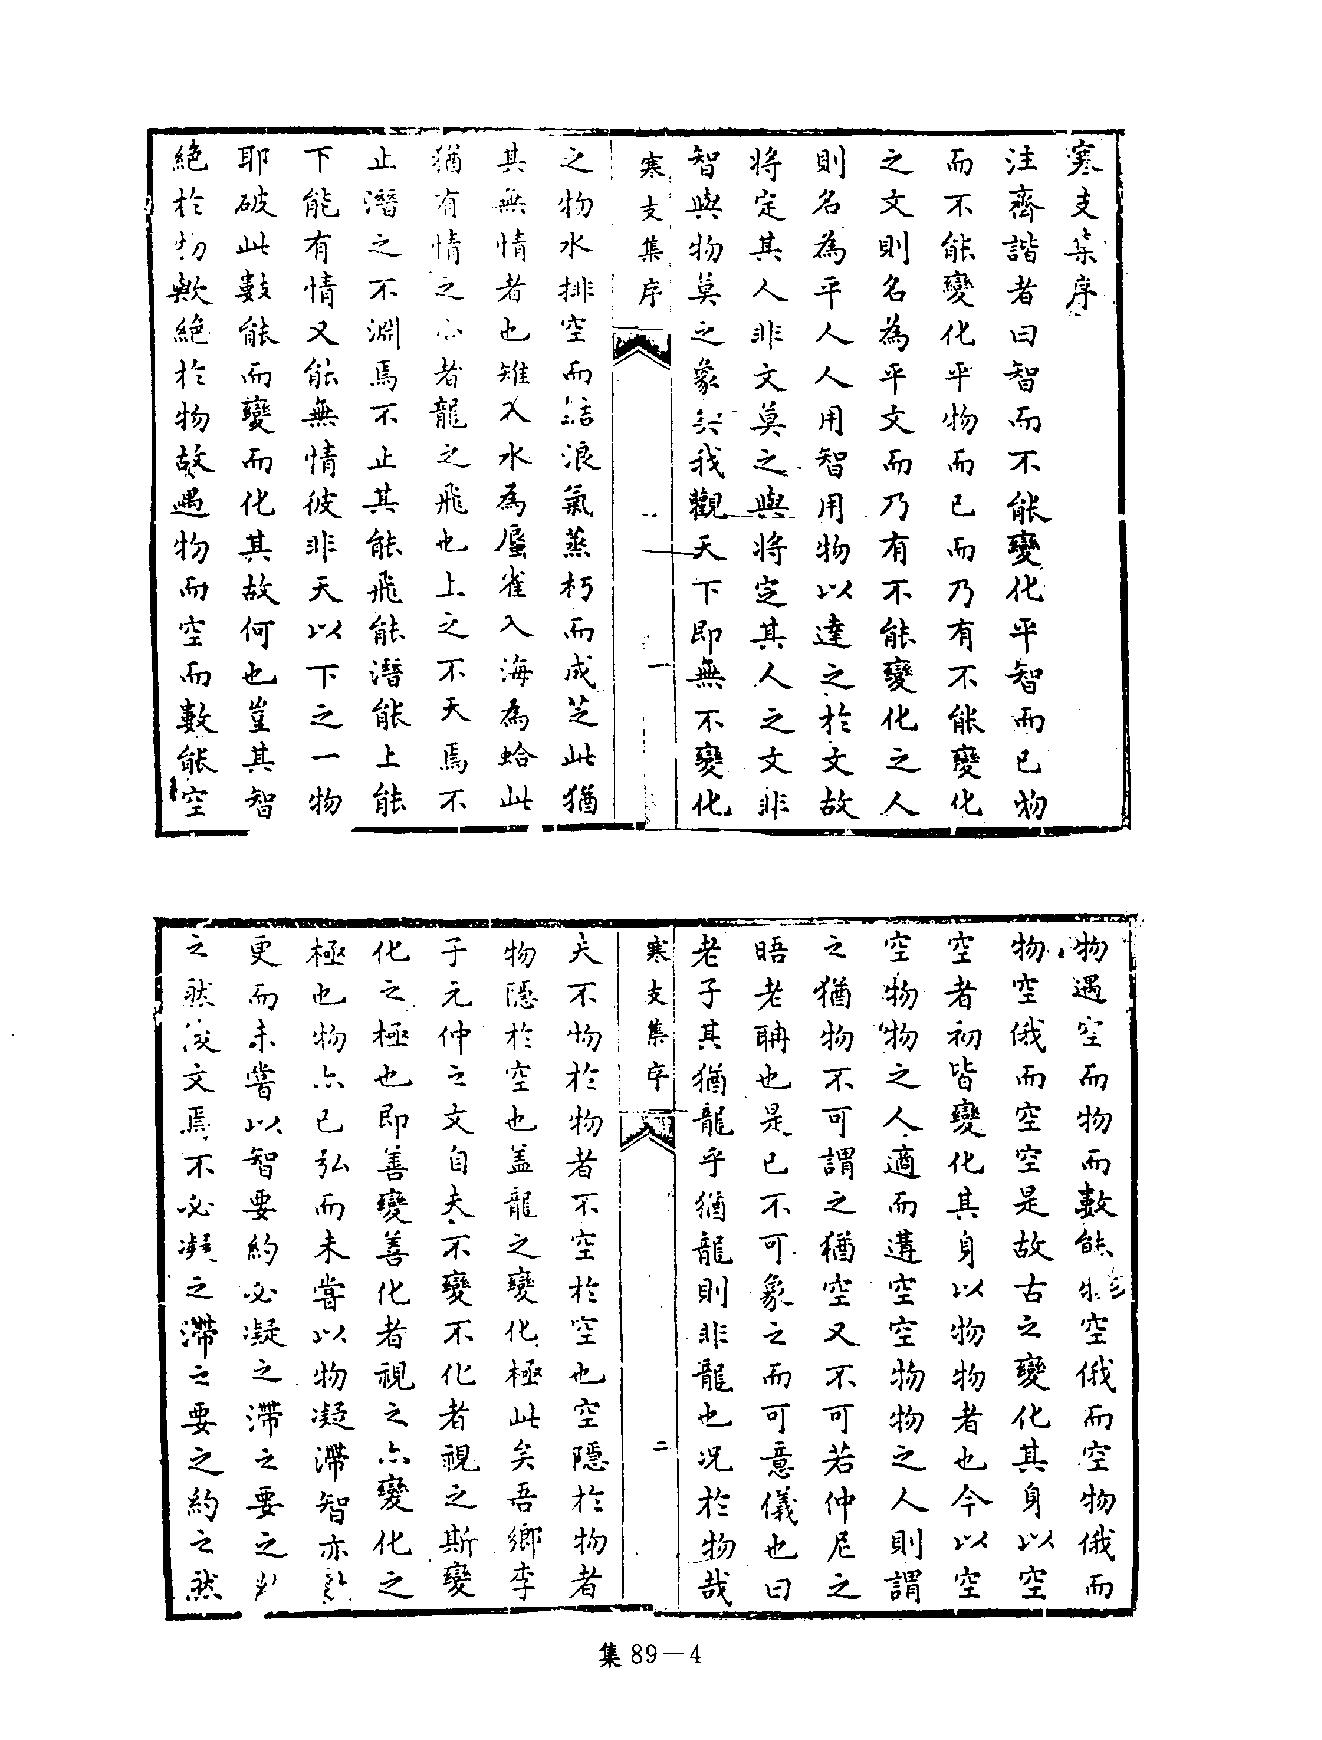 寒支集序
注齊諧者曰智而不能變化平智而已物
而不能變化平物而已而乃有不能變化
之文則名為平文而乃有不能變化之人
則名為平人人用智用物以達之於文故
將定其人非文莫之與將定其人之文非
智與物莫之象矣我觀天下即無不變化
寒支集序
一
之物水排空而結浪氣蒸朽而成芝此猶
其無情者也雉入水為蜃雀入海為蛤此
猶有情之小者龍之飛也上之不天焉不
止潛之不淵焉不止其能飛能潛能上能
下能有情又能無情彼非天以下之一物
耶破此數能而變而化其故何也豈其智
絕於物歟絕於物故遇物而空而數能空
物遇空而物而數能空俄而空物俄而
物空俄而空空是故古之變化其身以空
空者初皆變化其身以物物者也今以空
空物物之人適而遘空空物物之人則謂
之猶物不可謂之猶空又不可若仲尼之
晤老聃也是已不可象之而可意儀也曰
老子其猶龍乎猶龍則非龍也況於物哉
寒支集序
二
夫不物於物者不空於空也空隱於物者
物隱於空也蓋龍之變化極此矣吾鄉李
子元仲之文自夫不變不化者視之斯變
化之極也即善變善化者視之亦變化之
極也物亦已弘而未嘗以物凝滯智亦
更而未嘗以智要約必凝之滯之要之
之然後文焉不必凝之滯之要之約之然
集 89－4